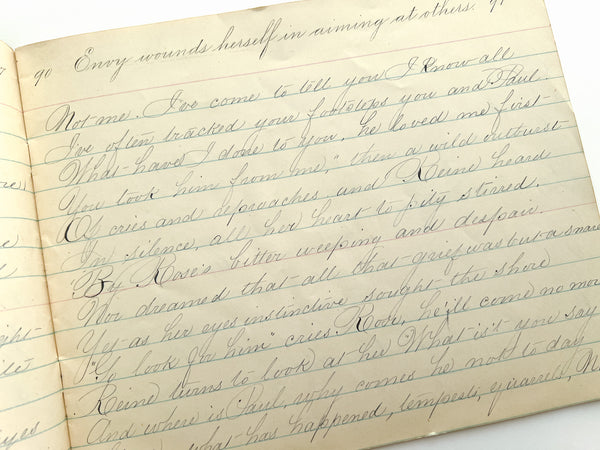 7
90 Envy wounds herself in aiming at others. 91
Not me. I've come to tell you I know all
I've often tracked your footsteps you and Paul.
What have I done to you, he loved me first
You took him from me," then a wild outburst
Of cries and reproaches and Reine heard
In silence, all her heart to pity stirred.
By Rose's bitter weeping and despair.
Nor dreamed that all that grief was but a snare
Yet as her eyes instinctive sought the shore
"So look for him" cries Rose, he'll come no mor
Reine turns to look at her What is't you say
And where is Paul, why comes he not to day
what has happened, tempests, quarrels,